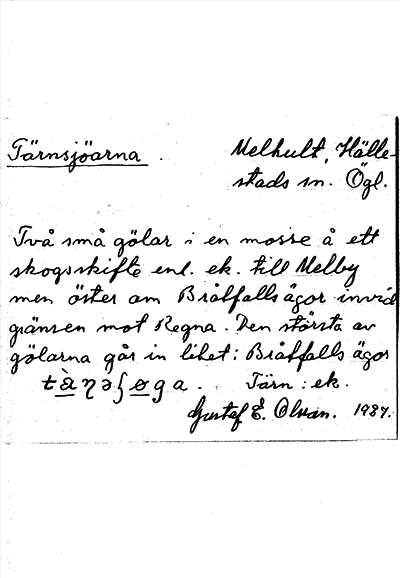 Tärnsjöarna. Melhult, Hälle-
stads sn. Ögl.
Två små gölar i en mosse å ett
skogsskifte enl. ek. till Melby
men öster om Bråtfallsägor invid
gränsen mot Regna. Den största av
gölarna går in litet i Bråtfalls ägor
Tärn : ek.
Gustef E. 1927.